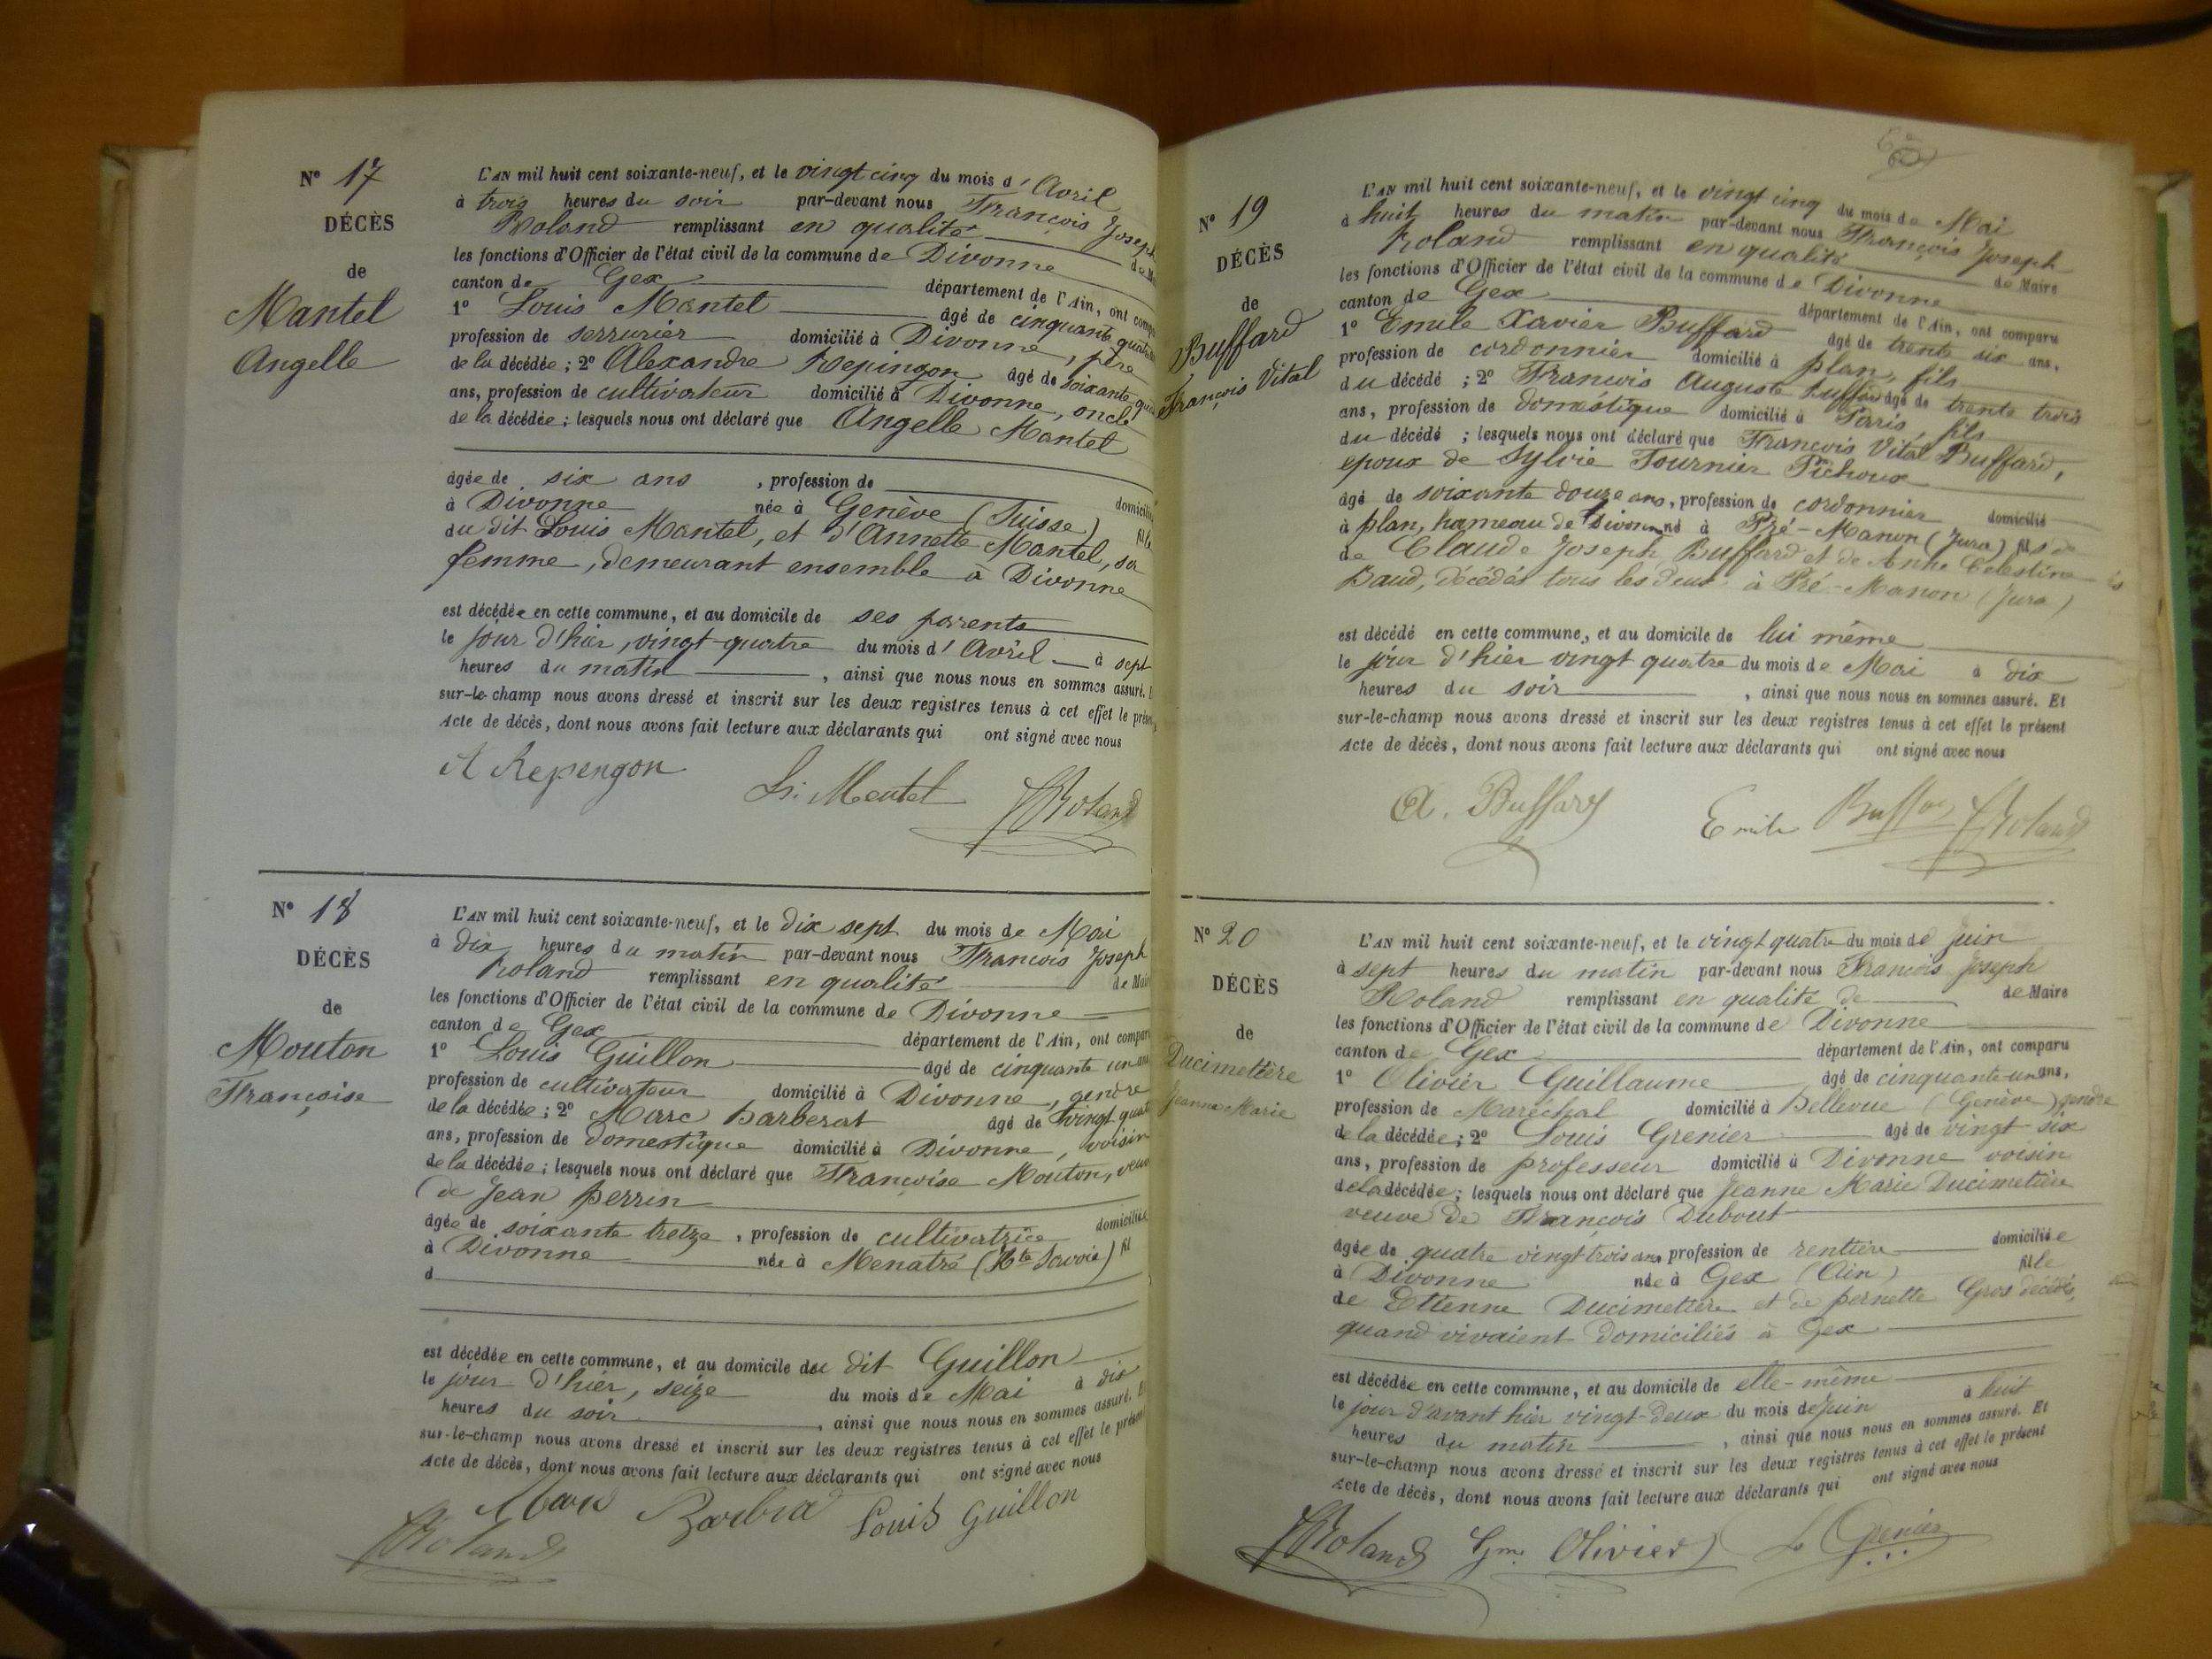 Nº 17
DÉCÈS
de
Mantel
Angelle
L'AN mil huit cent soixante-neuf, et le vingt cinq du mois d'Avril
à trois heures du soir par-devant nous François Joseph
Roland remplissant en qualité de Maire
les fonctions d'Officier de l'état civil de la commune de Divonne
canton de Gex département de l'Ain, ont comparu
1º Louis Mantel âgé de cinquante quatre
profession de serrurier domicilié à Divonne, père
de la décédée; 2º Alexandre Repingon âgé de soixante
ans, profession de cultivateur domicilié à Divonne, oncle
de la décédée; lesquels nous ont déclaré que Angelle Mantel
âgée de six ans, profession de domiciliée
à Divonne née à Genève (Suisse) fille
du dit Louis Mantel, et d'Annette Mantel, sa
femme, demeurant ensemble à Divonne
est décédée en cette commune, et au domicile de ses parents
le jour d'hier, vingt-quatre du mois d'Avril à sept
heures du matin, ainsi que nous nous en sommes assuré.
sur-le-champ nous avons dressé et inscrit sur les deux registres tenus à cet effet le présent
Acte de décès, dont nous avons fait lecture aux déclarants qui ont signé avec nous
A Repengon Ls. Mentel JRoland
Nº 18
DÉCÈS
de
Mouton
Françoise
L'AN mil huit cent soixante-neuf, et le dix sept du mois de Mai
à dix heures du matin par-devant nous François Joseph
Roland remplissant en qualité de Maire
les fonctions d'Officier de l'état civil de la commune de Divonne
canton de Gex département de l'Ain, ont comparu
1º Louis Guillon âgé de cinquante un ans
profession de cultivateur domicilié à Divonne, gendre
de la décédée; 2º Marc Barberat âgé de vingt quatre
ans, profession de domestique domicilié à Divonne, voisin
de la décédée; lesquels nous ont déclaré que Françoise Mouton, veuve
de Jean Perrin
âgée de soixante treize, profession de cultivatrice domiciliée
à Divonne née à Menatré (Hte Savoie) fil
d
est décédée en cette commune, et au domicile du dit Guillon
le jour d'hier, seize du mois de Mai à dix
heures du soir, ainsi que nous nous en sommes assuré. Et
sur-le-champ nous avons dressé et inscrit sur les deux registres tenus à cet effet le présent
Acte de décès, dont nous avons fait lecture aux déclarants qui ont signé avec nous
JRoland Marc Barbra Louis Guillon
Nº 19
DÉCÈS
de
Buffard
François Vital
L'AN mil huit cent soixante-neuf, et le vingt cinq du mois de Mai
à huit heures du matin par-devant nous François Joseph
Roland remplissant en qualité de Maire
les fonctions d'Officier de l'état civil de la commune de Divonne
canton de Gex département de l'Ain, ont comparu
1º Emile Xavier Buffard âgé de trente six ans,
profession de cordonnier domicilié à plan, fils
du décédé; 2º François Auguste Buffard âgé de trente trois
ans, profession de domestique domicilié à Paris, fils
du décédé; lesquels nous ont déclaré que François Vital Buffard,
epoux de Sylvie Fournier Pichoux
âgé de soixante douze ans, profession de cordonnier domicilié
à plan, hameau de Divonne né à Pré-Manon (Jura) fils
de Claude Joseph Buffard et de Anne Célestine
Baud, décédés tous les deux à Pré-Manon (Jura)
est décédé en cette commune, et au domicile de lui même
le jour d'hier vingt quatre du mois de Mai à dix
heures du soir, ainsi que nous nous en sommes assuré. Et
sur-le-champ nous avons dressé et inscrit sur les deux registres tenus à cet effet le présent
Acte de décès, dont nous avons fait lecture aux déclarants qui ont signé avec nous
A. Buffard Emile Buffard JRoland
Nº 20
DÉCÈS
de
Ducimettère
Jeanne Marie
L'AN mil huit cent soixante-neuf, et le vingt quatre du mois de Juin
à sept heures du matin par-devant nous François Joseph
Roland remplissant en qualité de de Maire
les fonctions d'Officier de l'état civil de la commune de Divonne
canton de Gex département de l'Ain, ont comparu
1º Olivier Guillaume âgé de cinquante un ans,
profession de Maréchal domicilié à Bellevue (Genève) gendre
de la décédée; 2º Louis Grenier âgé de vingt-six
ans, profession de professeur domicilié à Divonne voisin
de la décédée; lesquels nous ont déclaré que Jeanne Marie Ducimetière
veuve de François Dubout
âgée de quatre vingt trois ans profession de rentière domiciliée
à Divonne née à Gex (Ain) fille
de Etienne Ducimetière et de Pernette Gros décédés,
quand vivaient domiciliés à Gex
est décédée en cette commune, et au domicile de elle-même
le jour d'avant hier vingt-deux du mois de Juin à huit
heures du matin, ainsi que nous nous en sommes assuré. Et
sur-le-champ nous avons dressé et inscrit sur les deux registres tenus à cet effet le présent
Acte de décès, dont nous avons fait lecture aux déclarants qui ont signé avec nous
JRoland Gme Olivier L Grenier